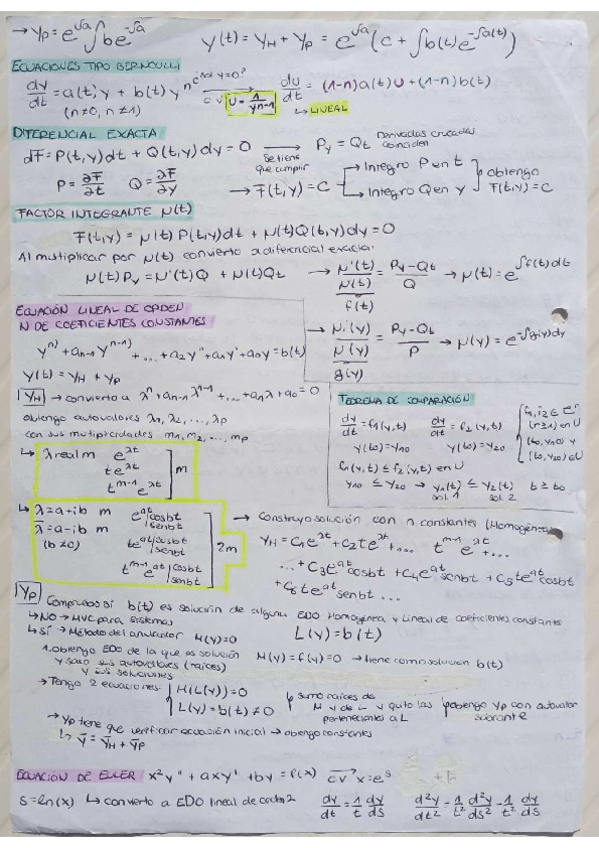 → Yp = e^∫a ∫be^-∫a    Y(t) = YH + Yp = e^∫a (c + ∫b(t)e^-∫a(t))
ECUACIONES TIPO BERNOULLI
dy/dt = a(t)y + b(t)y^n  ¿sol y=0?  CV U = 1/y^n-1  → dU/dt = (1-n)a(t)U + (1-n)b(t)
(n≠0, n≠1)  ↳ LINEAL
DIFERENCIAL EXACTA
dF = P(t,y)dt + Q(t,y)dy = 0  → Se tiene que cumplir  Py = Qt  Derivadas cruzadas coinciden
P = ∂F/∂t  Q = ∂F/∂y  → F(t,y) = C  → Integro P en t  → Integro Q en y  } obtengo F(t,y)=C
FACTOR INTEGRANTE μ(t)
F(t,y) = μ(t) P(t,y)dt + μ(t)Q(t,y)dy = 0
Al multiplicar por μ(t) convierto a diferencial exacta.
μ(t)Py = μ'(t)Q + μ(t)Qt  → μ'(t)/μ(t) = (Py-Qt)/Q → μ(t) = e^∫f(t)dt
f(t)
→ μ'(y)/μ(y) = (Py-Qt)/P → μ(y) = e^-∫g(y)dy
g(y)
ECUACIÓN LINEAL DE ORDEN
N DE COEFICIENTES CONSTANTES
y^n) + an-1 y^n-1) + ... + a2y'' + a1y' + a0y = b(t)
y(t) = YH + Yp
YH → convierto a λ^n + an-1 λ^n-1 + ... + a1λ + a0 = 0
obtengo autovalores λ1, λ2, ..., λp
con sus multiplicidades m1, m2, ..., mp
TEOREMA DE COMPARACIÓN
dy/dt = f1(y,t)  dy/dt = f2(y,t)
y(t0) = y10  y(t0) = y20
f1(y,t) ≤ f2(y,t) en U
y10 ≤ y20 → y1(t) ≤ y2(t)  t ≥ t0
sol 1  sol 2
↳ λ real m  e^λt
te^λt
t^m-1 e^λt  ] m
↳ λ = a+ib  m  e^at |cosbt |senbt
λ̄ = a-ib  m
(b≠0)  te^at |cosbt |senbt
t^m-1 e^at |cosbt |senbt  ] 2m
→ Construyo solución con n constantes (Homogénea)
YH = C1e^λt + C2te^λt + ... t^m-1 e^λt + ...
... + C3e^at cosbt + C4e^at senbt + C5te^at cosbt
+ C6te^at senbt ...
Yp Compruebo si b(t) es solución de alguna EDO Homogénea y Lineal de coeficientes constantes
↳ NO → MVC para sistemas
↳ SÍ → Método del anulador M(y)=0  L(y) = b(t)
1. obtengo EDO de la que es solución
y saco sus autovalores (raíces)
y sus soluciones  M(y) = f(y) = 0 → tiene como solución b(t)
→ Tengo 2 ecuaciones  M(L(y)) = 0
L(y) = b(t) ≠ 0
sumo raíces de M y de L y quito las pertenecientes a L
obtengo Yp con autovalor sobrante
→ Yp tiene que verificar ecuación inicial → obtengo constantes
↳ ȳ = ȳH + ȳp
ECUACIÓN DE EULER  x²y'' + axy' + by = f(x)  CV x = e^s
s = ln(x)  ↳ convierto a EDO lineal de orden 2  dy/dt = 1/t dy/ds  d²y/dt² = 1/t² d²y/ds² - 1/t² dy/ds